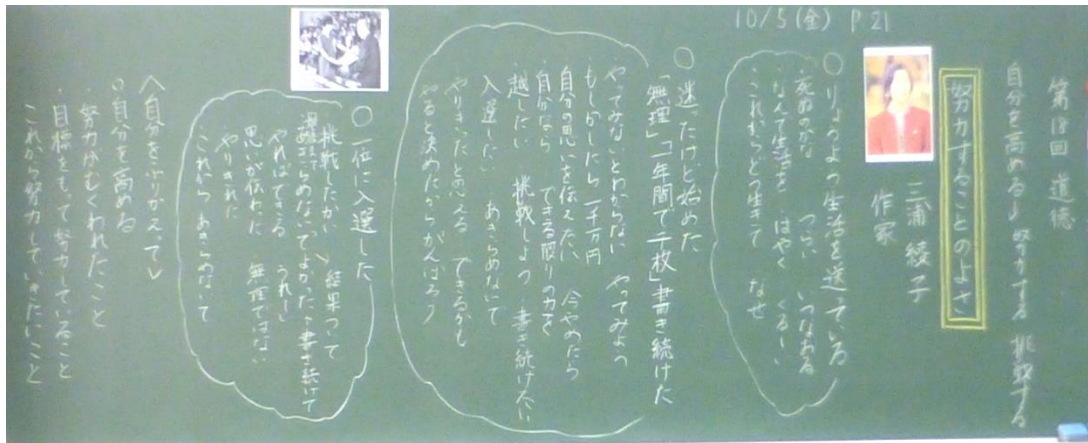 10/5(金) P21
第18回 道徳
自分を高める→努力する 挑戦する
努力することのよさ
三浦 綾子
作家
○りょうよう生活を送っている
死ぬのかな つらい いつなおる
なんて生活を はやく くるしい
これからどう生きて なぜ
○迷ったけど始めた
「無理」「一年間で千枚」書き続けた
やってみないとわからない やってみよう
もしかしたら一千万円
自分の思いを伝えたい 今やめたら
自分なら できる限りの力を
越したい 挑戦しよう 書き続けたい
入選したい あきらめないで
やりきったと思える できるかも
やると決めたからがんばろう
○一位に入選した
挑戦したかい 結果つって
あきらめないでよかった 書き続けて
やればできる うれしい
思いが伝わった 無理ではない
やりきれた
これからもあきらめないで
〈自分をふりかえって〉
○自分を高める
・努力がむくわれたこと
・目標をもって努力していること
・これから努力していきたいこと